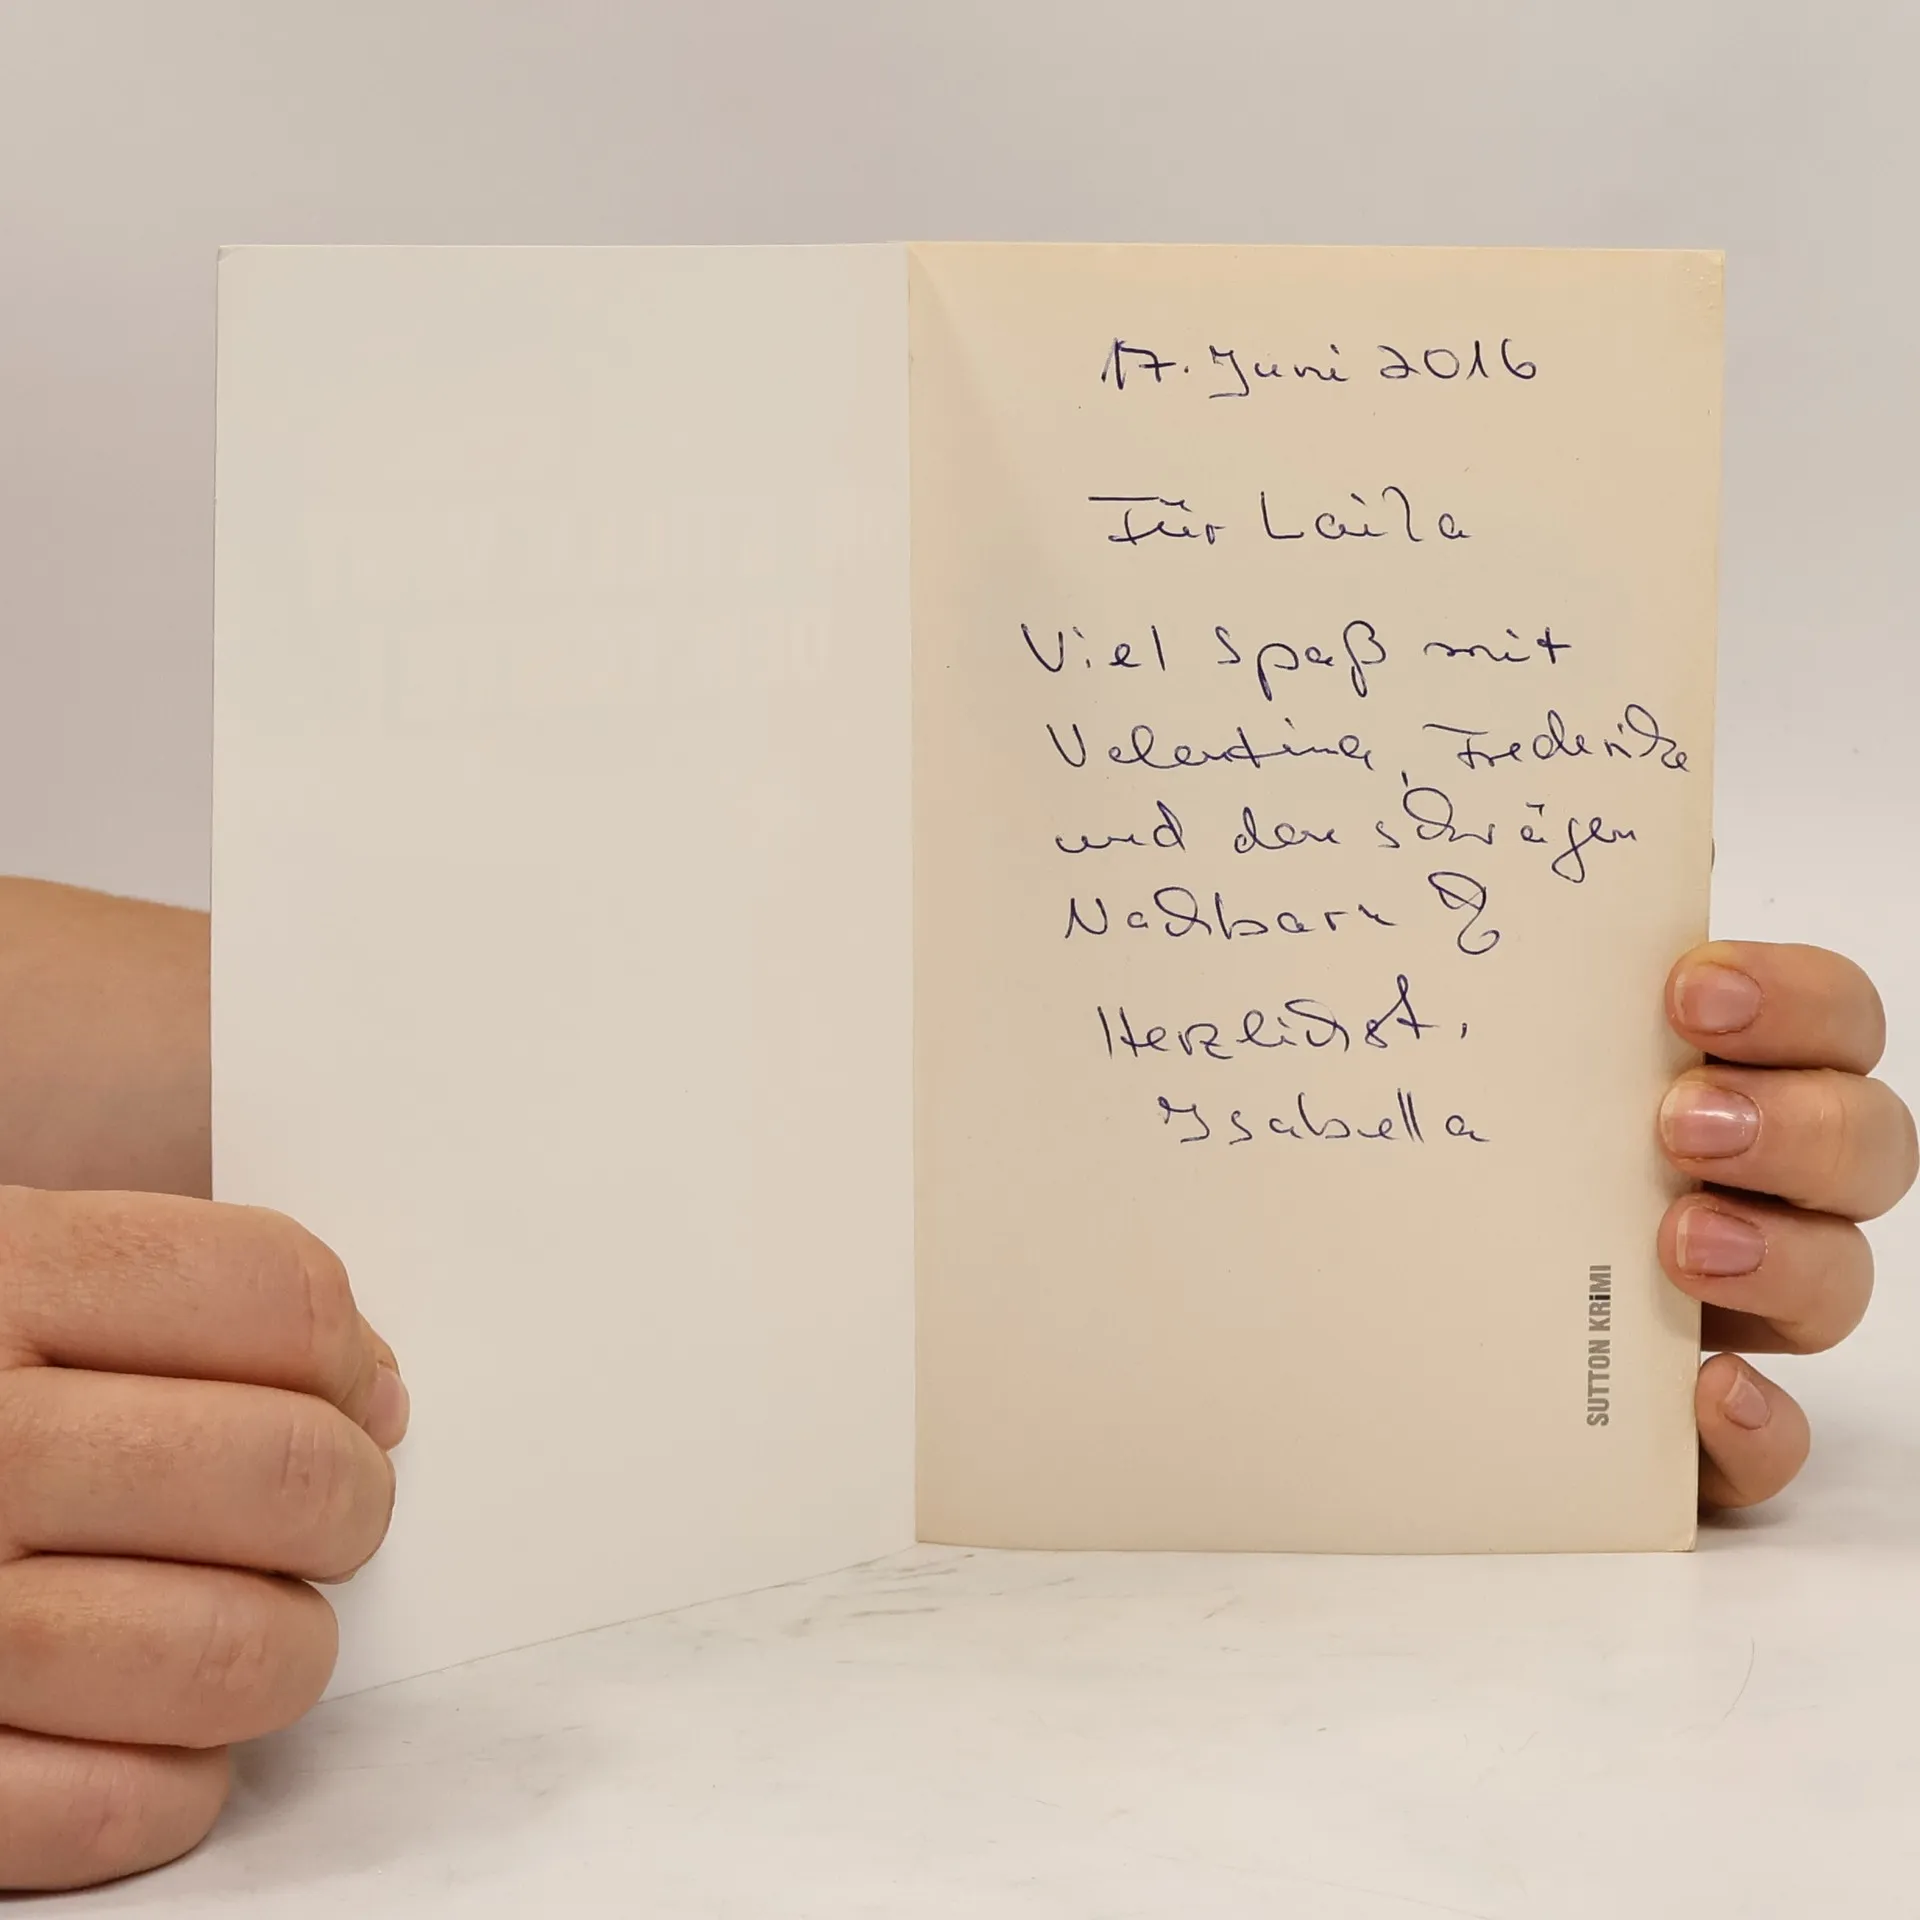 17. Juni 2016
Für Laila
Viel Spaß mit
Valentina, Frederike
und den schrägen
Nachbarn
Herzlichst,
Isabella
SUTTON KRiMI